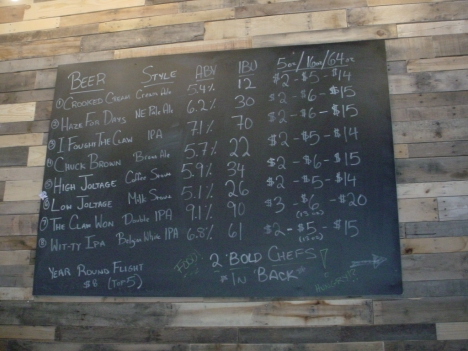 BEER STYLE ABV IBU 5oz/16oz/64oz
① CROOKED CREAM Cream Ale 5.4% 12 $2 - $5 - $14
② HAZE FOR DAYS NE Pale Ale 6.2% 30 $2 - $6 - $15
③ I FOUGHT THE CLAW IPA 7.1% 70 $2 - $6 - $15
④ CHUCK BROWN Brown Ale 5.7% 22 $2 - $5 - $14
⑤ HIGH JOLTAGE Coffee Stout 5.9% 34 $2 - $6 - $15
⑥ LOW JOLTAGE Milk Stout 5.1% 26 $2 - $5 - $14
⑦ THE CLAW WON Double IPA 9.1% 90 $3 - $6 - $20
(13 oz)
⑧ WIT-TY IPA Belgian White IPA 6.8% 61 $2 - $5 - $15
(13 oz)
YEAR ROUND FLIGHT
$8 (TOP 5)
FOOD?
2 BOLD CHEFS!
*IN BACK*
HUNGRY?